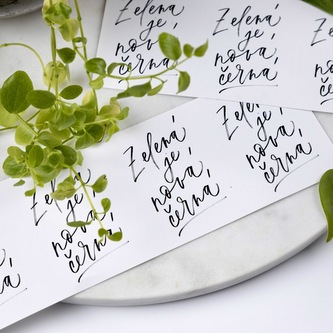 Zelená
je,
nová
černá
Zelená
je,
nová
černá
Zelená
je,
nová
černá
Zelená
je,
nová
černá
Zelená
je,
nová
černá
Zelená
je,
nová
černá